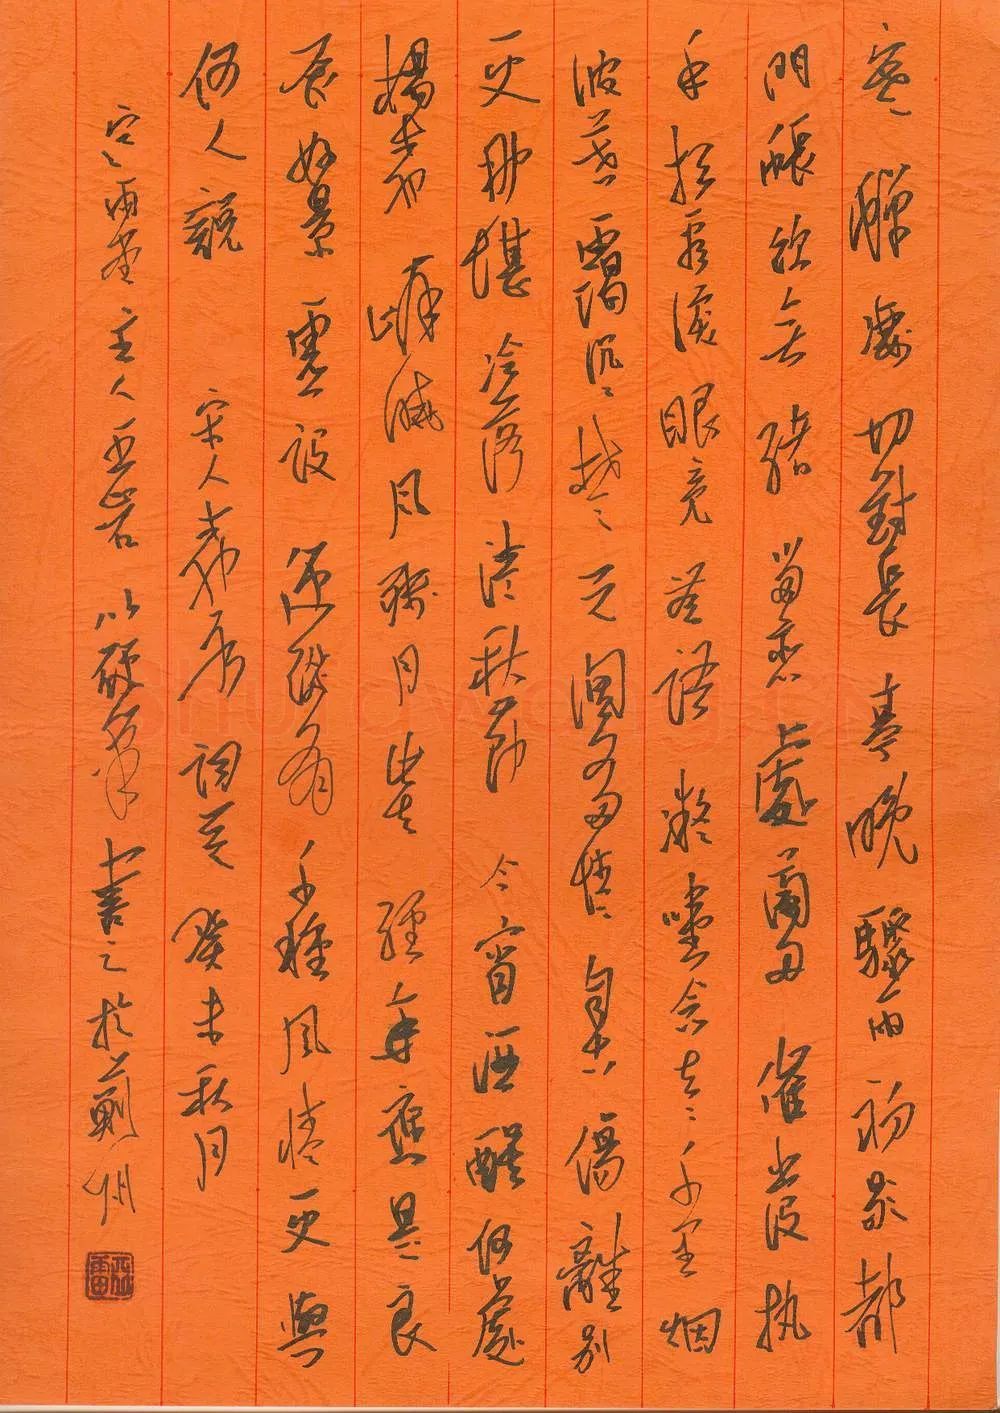 寒蟬凄切對長亭晚驟雨初歇都
門帳飲無緒留戀處蘭舟催發執
手相看淚眼竟無語凝噎念去々千里烟
波暮靄沉々楚天闊多情自古傷離別
更那堪冷落清秋節今宵酒醒何處
楊柳岸曉風殘月此去經年應是良
辰好景虛設便縱有千種風情更與
何人說 宋人柳永詞 癸未秋月
雨堂主人 以硬筆書之於州